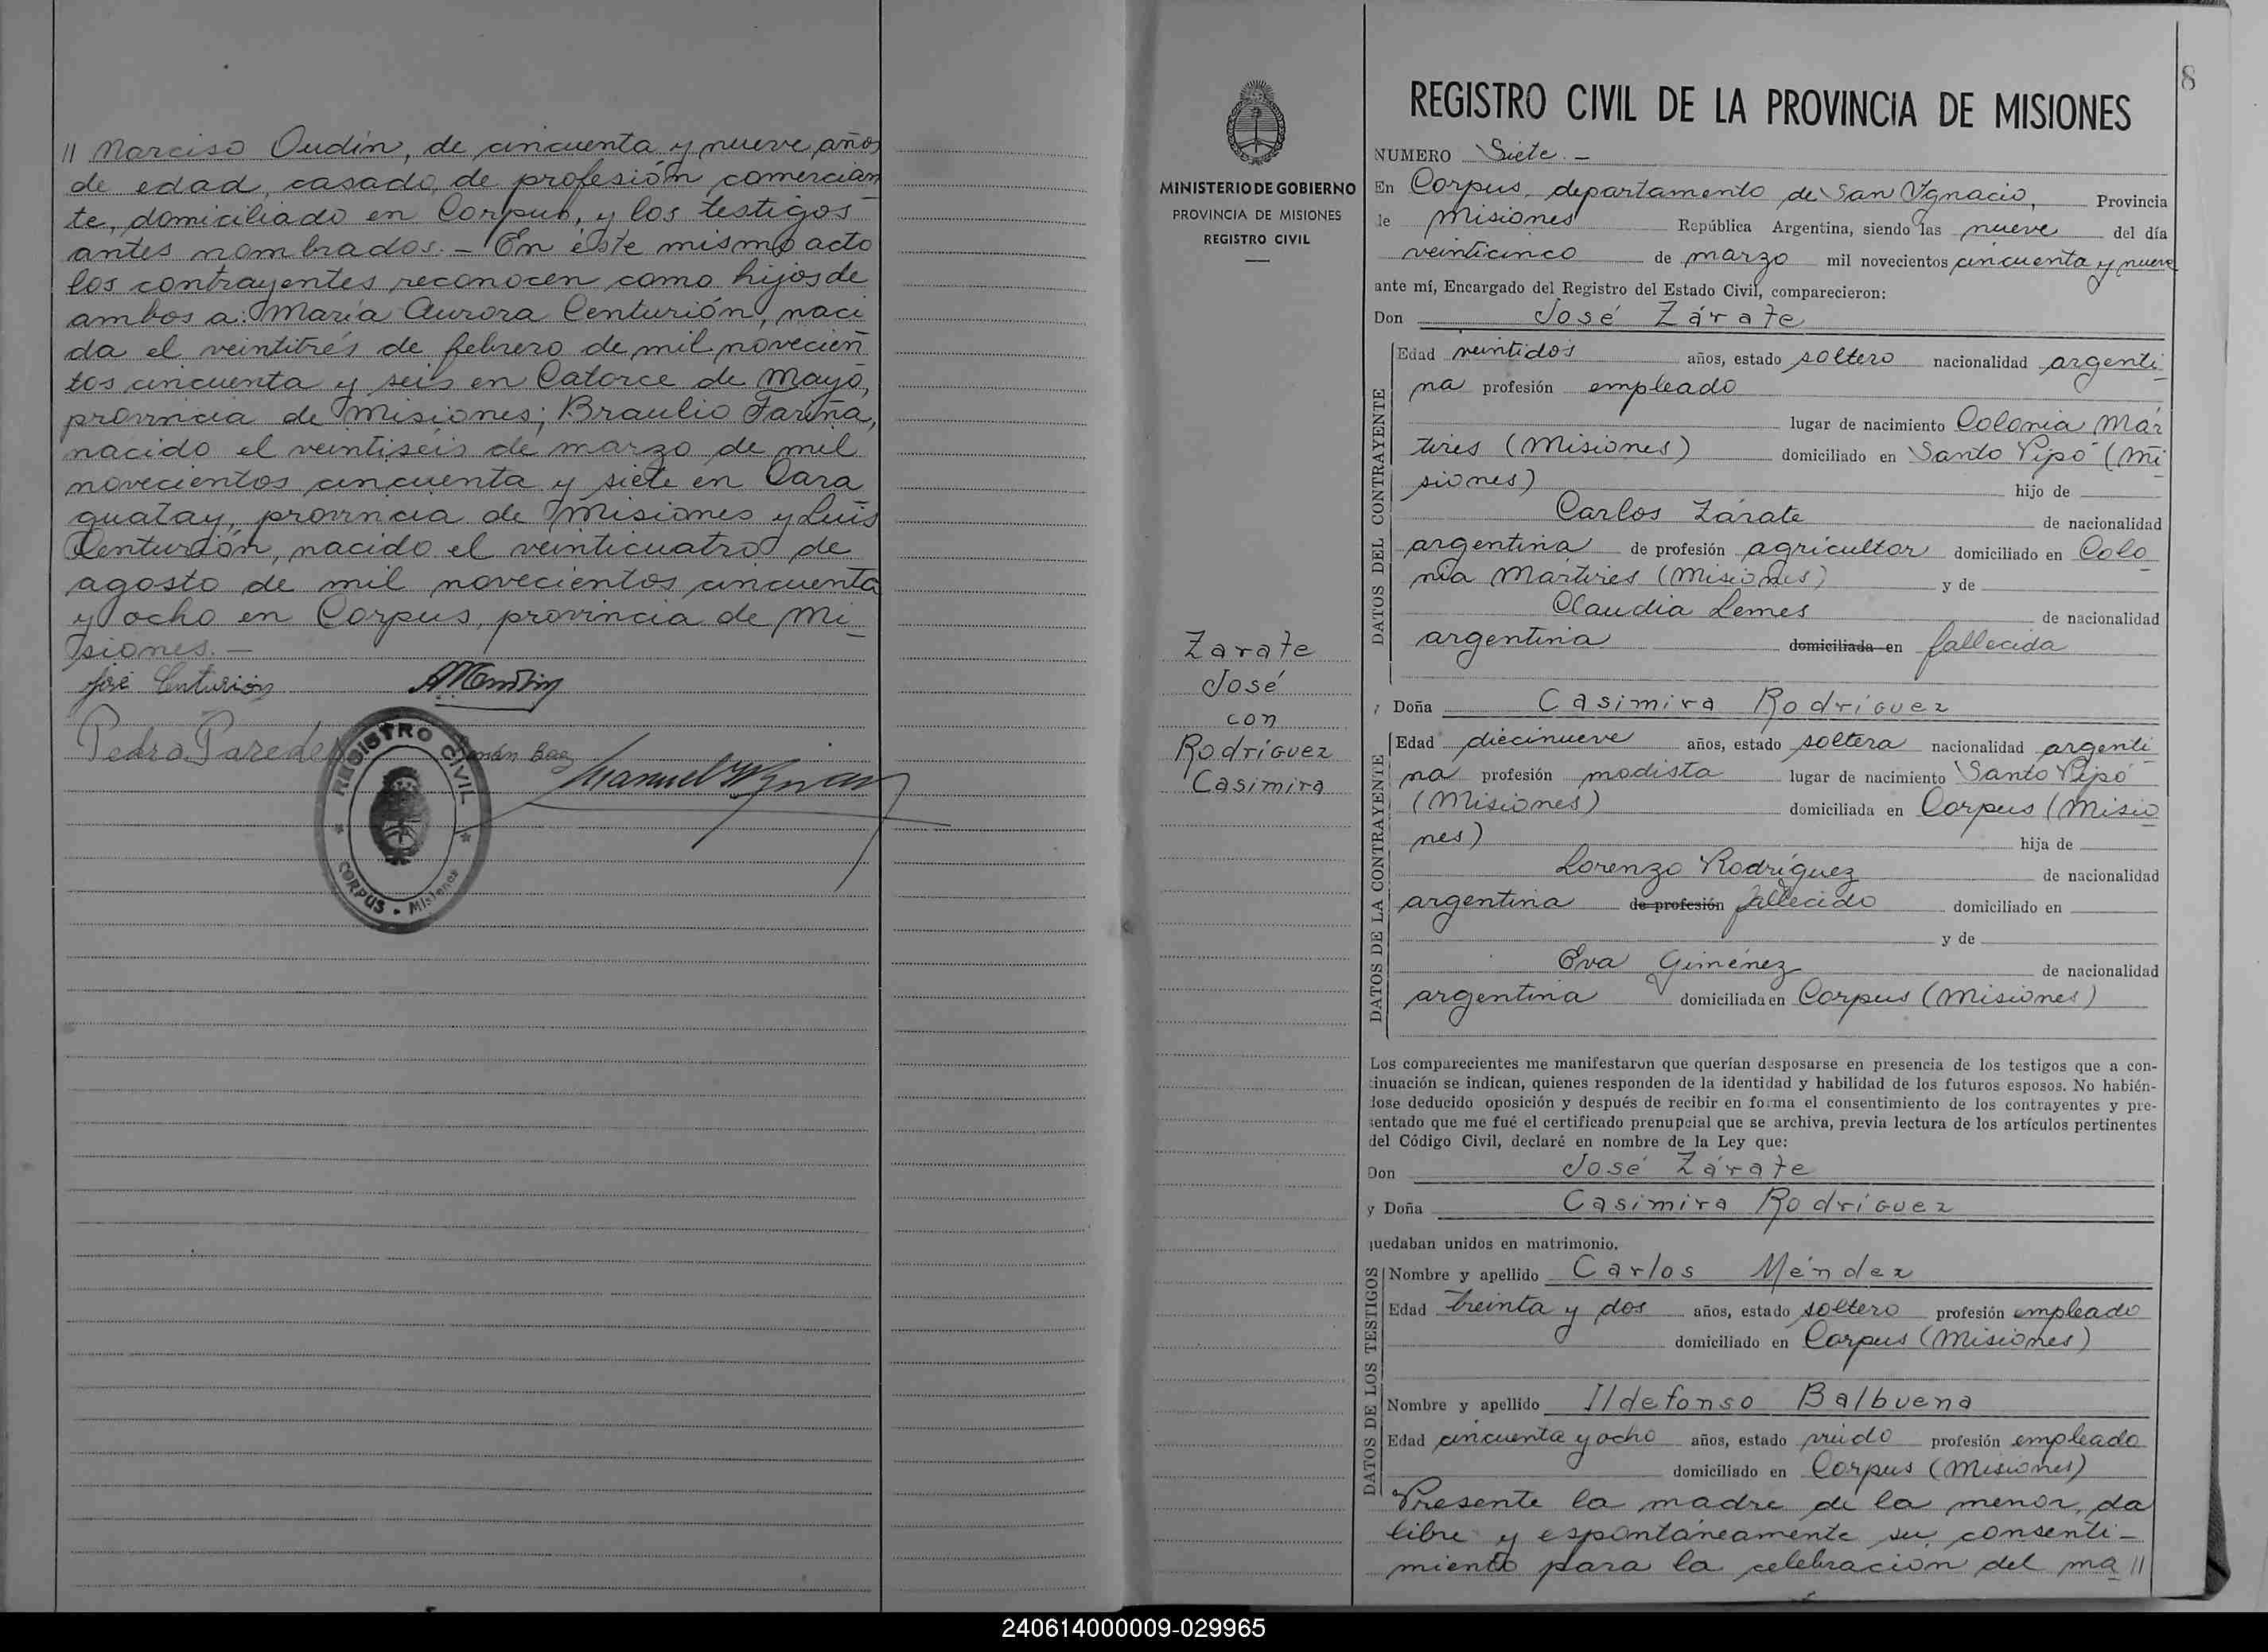 // Narciso Oudín, de cincuenta y nueve años
de edad, casado, de profesión comercian
te, domiciliado en Corpus, y los testigos
antes nombrados.- En éste mismo acto
los contrayentes reconocen como hijos de
ambos a: María Aurora Centurión, naci
da el veintitrés de febrero de mil novecien
tos cincuenta y seis en Catorce de Mayo,
provincia de Misiones; Braulio Fariña,
nacido el veintiseis de marzo de mil
novecientos cincuenta y siete en Cara
guatay, provincia de Misiones y Luis
Centurión, nacido el veinticuatro de
agosto de mil novecientos cincuenta
y ocho en Corpus, provincia de Mi_
siones.-
José Centurión
Pedro Paredes
Román Baez
Manuel
REGISTRO CIVIL
CORPUS - Misiones
MINISTERIO DE GOBIERNO
PROVINCIA DE MISIONES
REGISTRO CIVIL
Zarate
José
con
Rodríguez
Casimira
8
REGISTRO CIVIL DE LA PROVINCIA DE MISIONES
NUMERO Siete.-
En Corpus, departamento de San Ygnacio, Provincia
de Misiones República Argentina, siendo las nueve del día
veinticinco de marzo mil novecientos cincuenta y nueve
ante mí, Encargado del Registro del Estado Civil, comparecieron:
Don José Zárate
DATOS DEL CONTRAYENTE
Edad veintidós años, estado soltero nacionalidad argenti_
na profesión empleado
lugar de nacimiento Colonia Már
tires (Misiones) domiciliado en Santo Pipó (Mi_
siones) hijo de
Carlos Zárate de nacionalidad
argentina de profesión agricultor domiciliado en Colo_
nia Mártires (Misiones) y de
Claudia Lemes de nacionalidad
argentina domiciliada en fallecida
y Doña Casimira Rodríguez
DATOS DE LA CONTRAYENTE
Edad diecinueve años, estado soltera nacionalidad argenti_
na profesión modista lugar de nacimiento Santo Pipó
(Misiones) domiciliada en Corpus (Misio_
nes) hija de
Lorenzo Rodríguez de nacionalidad
argentina de profesión fallecido domiciliado en
y de
Eva Giménez de nacionalidad
argentina domiciliada en Corpus (Misiones)
Los comparecientes me manifestaron que querían desposarse en presencia de los testigos que a con-
tinuación se indican, quienes responden de la identidad y habilidad de los futuros esposos. No habién-
dose deducido oposición y después de recibir en forma el consentimiento de los contrayentes y pre-
sentado que me fué el certificado prenupcial que se archiva, previa lectura de los artículos pertinentes
del Código Civil, declaré en nombre de la Ley que:
Don José Zárate
y Doña Casimira Rodríguez
quedaban unidos en matrimonio.
DATOS DE LOS TESTIGOS
Nombre y apellido Carlos Méndez
Edad treinta y dos años, estado soltero profesión empleado
domiciliado en Corpus (Misiones)
Nombre y apellido Ildefonso Balbuena
Edad cincuenta y ocho años, estado viudo profesión empleado
domiciliado en Corpus (Misiones)
Presente la madre de la menor, da
libre y espontáneamente su consenti-
miento para la celebración del ma //
240614000009-029965